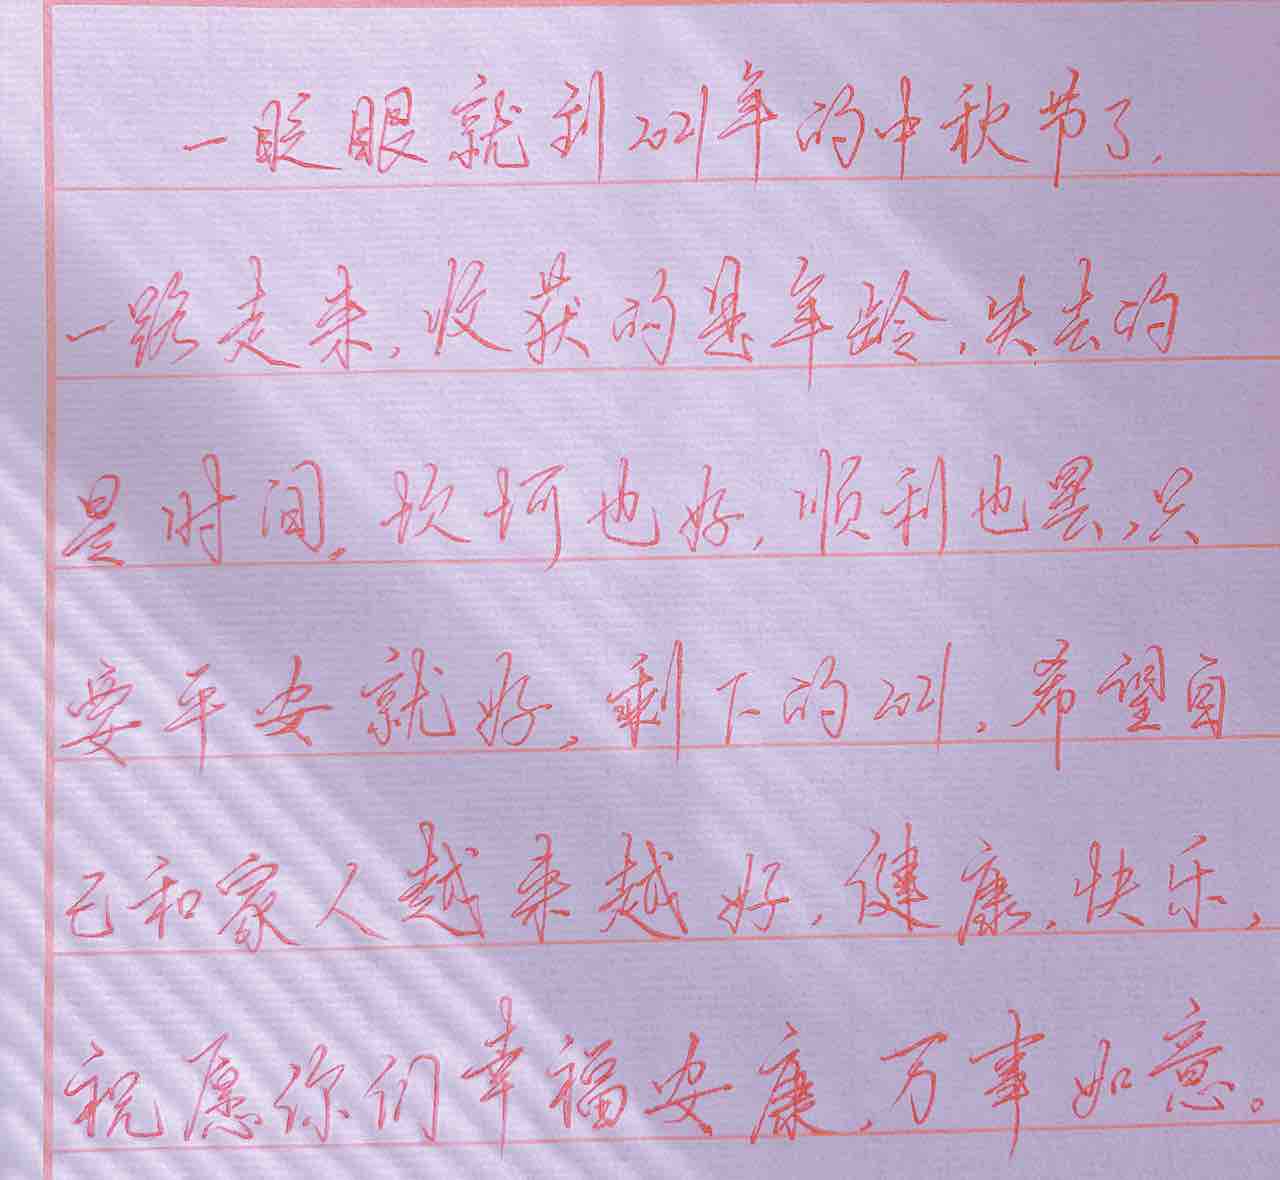 一眨眼就到2021年的中秋节了,
一路走来,收获的是年龄,失去的
是时间,坎坷也好,顺利也罢,只
要平安就好,剩下的2021,希望自
己和家人越来越好,健康,快乐,
祝愿你们幸福安康,万事如意。